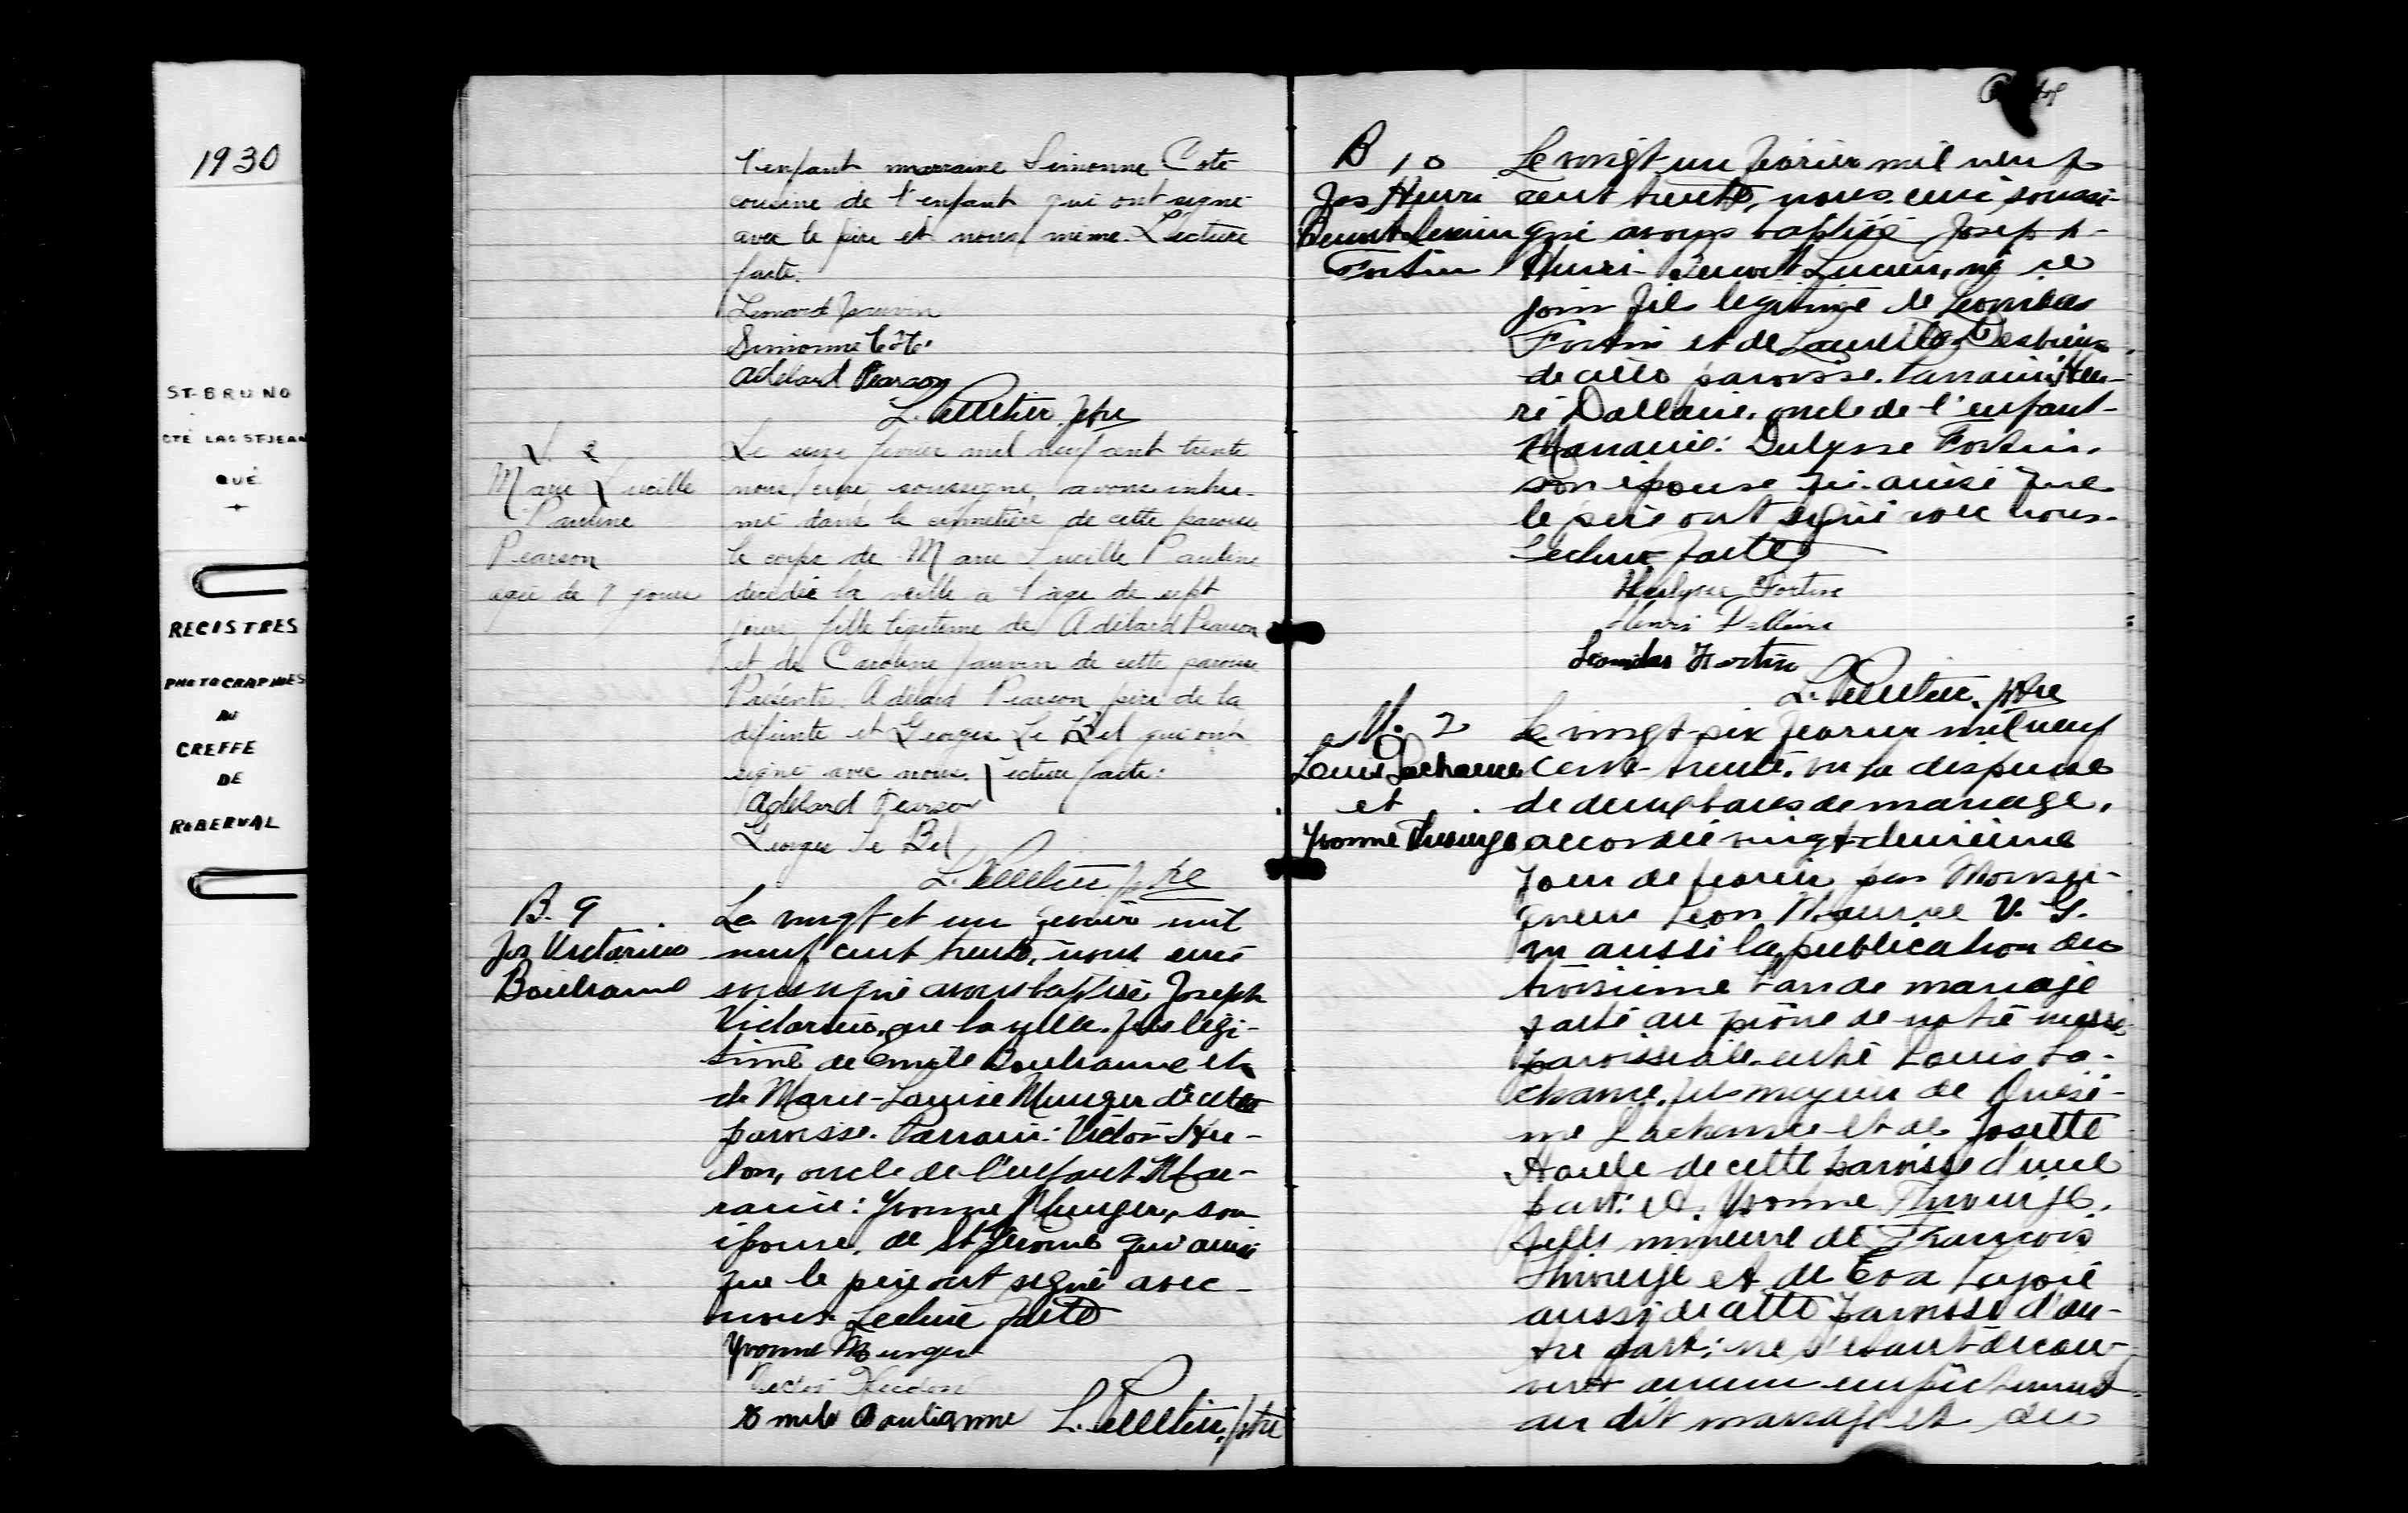 1930
ST-BRUNO
CTÉ LAC ST-JEAN
QUÉ.
REGISTRES
PHOTOGRAPHIÉS
AU
GREFFE
DE
ROBERVAL
l'enfant marraine Simonne Coté
cousine de l'enfant qui ont signé
avec le père et nous même. Lecture
faite.
Simonne Côté
Adélard Pearson
L. Pelletier, ptre
S. 2
Marie Lucille
Pauline
Pearson
agée de 7 jours
Le seize fevrier mil neuf cent trente
nous curé soussigné, avons inhu-
mé dans le cimetière de cette paroisse
le corps de Marie Lucille Pauline
décédée la veille à l'age de sept
jours, fille légitime de Adélard Pearson
et de Caroline Jauvin de cette paroisse
Présents, Adélard Pearson père de la
défunte et Georges Le Bel qui ont
signé avec nous. Lecture faite.
Adélard Pearson
Georges Le Bel
L. Pelletier, ptre
B. 9
Jos Victorien
Boulianne
Le vingt et un fevrier mil
neuf cent trente, nous curé
soussigné avons baptisé Joseph
Victorien, né la veille, fils légi-
time de Emile Boulianne et
de Marie-Louise Munger de cette
paroisse. Parrain: Victor Hu-
don, oncle de l'enfant. Mar-
raine: Yvonne Munger, son
épouse, de St Jérome qui ainsi
que le père ont signé avec
nous. Lecture faite
Yvonne Munger
Victor Hudon
Emile Boulianne L. Pelletier, ptre
B 10
Jos Henri
Benoit Lucien
Fortin
Le vingt un février mil neuf
cent trente, nous curé soussi-
gné avons baptisé Joseph-
Henri-Benoit Lucien, né ce
jour fils légitime de Léonidas
Fortin et de Desbiens
de cette paroisse. Parrain: Hen-
ri Dallaire, oncle de l'enfant-
Marraine: Fortin,
son épouse qui ainsi que
le père ont signé avec nous.
Lecture faite
Fortin
Henri Dallaire
Léonidas Fortin
L. Pelletier, ptre
M. 2
Louis Lachance
et
Yvonne Thivierge
Le vingt-six fevrier mil neuf
cent-trente, vu la dispense
de deux bans de mariage,
accordée vingt-deuxième
jour de février par Monsei-
gneur Léon Maurice V. G.
vu aussi la publication du
troisième ban de mariage
faite au prône de notre messe
paroissiale entre Louis La-
chance, fils majeur de Onési-
me Lachance et de Josette
de cette paroisse d'une
part: et Yvonne Thivierge,
fille mineure de François
Thivierge et de Eva Lajoie
aussi de cette paroisse d'au-
tre part; ne s'étant décou-
vert aucun empêchement
au dit mariage et du